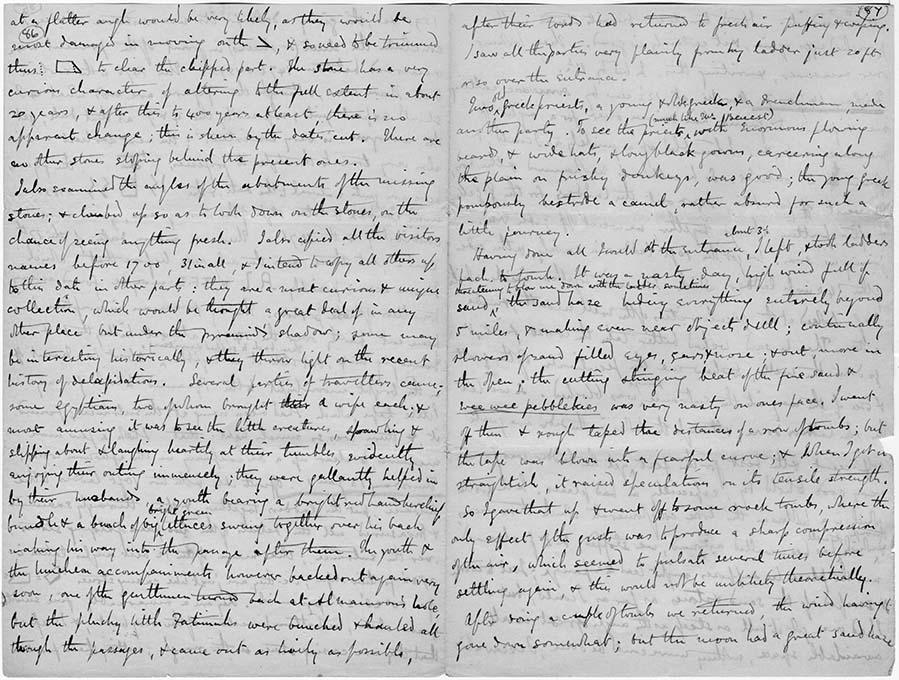 86
at a flatter angle would be very likely, as they would be
most damaged in moving on the , & so need to be trimmed
thus: to clear the chipped part. The stone has a very
curious character, of altering to the full extent in about
20 years, & after this to 400 years at least there is no
apparent change; this is shewn by the dates cut. There are
no other stones sloping behind the present ones.
I also examined the angles of the abutments of the missing
stones; & climbed up so as to look down on the stones, on the
chance of seeing anything fresh. I also copied all the visitors
names before 1700, 31 in all, & I intend to copy all others up
to this date in other part; they are a most curious & unique
collection which would be thought a great deal of in any
other place but under the pyramid's shadow; some may
be interesting historically, & they throw light on the recent
history of delapidations. Several parties of travellers came;
some Egyptians, two of whom brought a wife each; &
most amusing it was to see the little creatures, sprawling &
slipping about & laughing heartily at their tumbles, evidently
enjoying their outing immensely; they were gallantly helped in
by their husbands, a youth bearing a bright red handkerchief
bundle & a bunch of big bright green lettuces swung together over his back
making his way into the passage after them. The youth &
the luncheon accompaniments however backed out again very
soon, one of the gentlemen back at Al mamoon's hole
but the plucky little Fatimahs were bunched & hauled all
through the passages, & came out as lively as possible,
87
after their lords had returned to fresh air puffing & wiping.
I saw all the parties very plainly from my ladder just 20 ft
or so over the entrance.
Two Greek priests, a young Greek, & a Frenchman made
another party. To see the priests (much like Mr. ) with enormous flowing
beard, & wide hats, & long black gowns, careering along
the plain on frisky donkeys, was good; the young Greek
pompously bestrode a camel, rather absurd for such a
little journey.
Having done all I could at the entrance, I left about 3½ & took ladders
back to tomb. It was a nasty day, high wind full of
sand, threatening to blow me down with the ladder sometimes the sand haze hiding everything entirely beyond
5 miles, & making even near objects dull; continually
showers of sand filled eyes, ears & nose; & out, more in
the open, the cutting stinging beat of the fine sand &
wee wee pebblekies was very nasty on ones face. I went
off then & rough taped the distances of a row of tombs; but
the tape was blown into a fearful curve; & when I got it
straightish, it raised speculations on its tensile strength.
So I gave that up & went off to some rock tombs, where the
only effect of the gusts was to produce a sharp compression
of the air, which seemed to pulsate several times before
settling again, & this would not be unlikely theoretically.
After doing a couple of tombs we returned the wind having
gone down somewhat; but the moon had a great sand haze